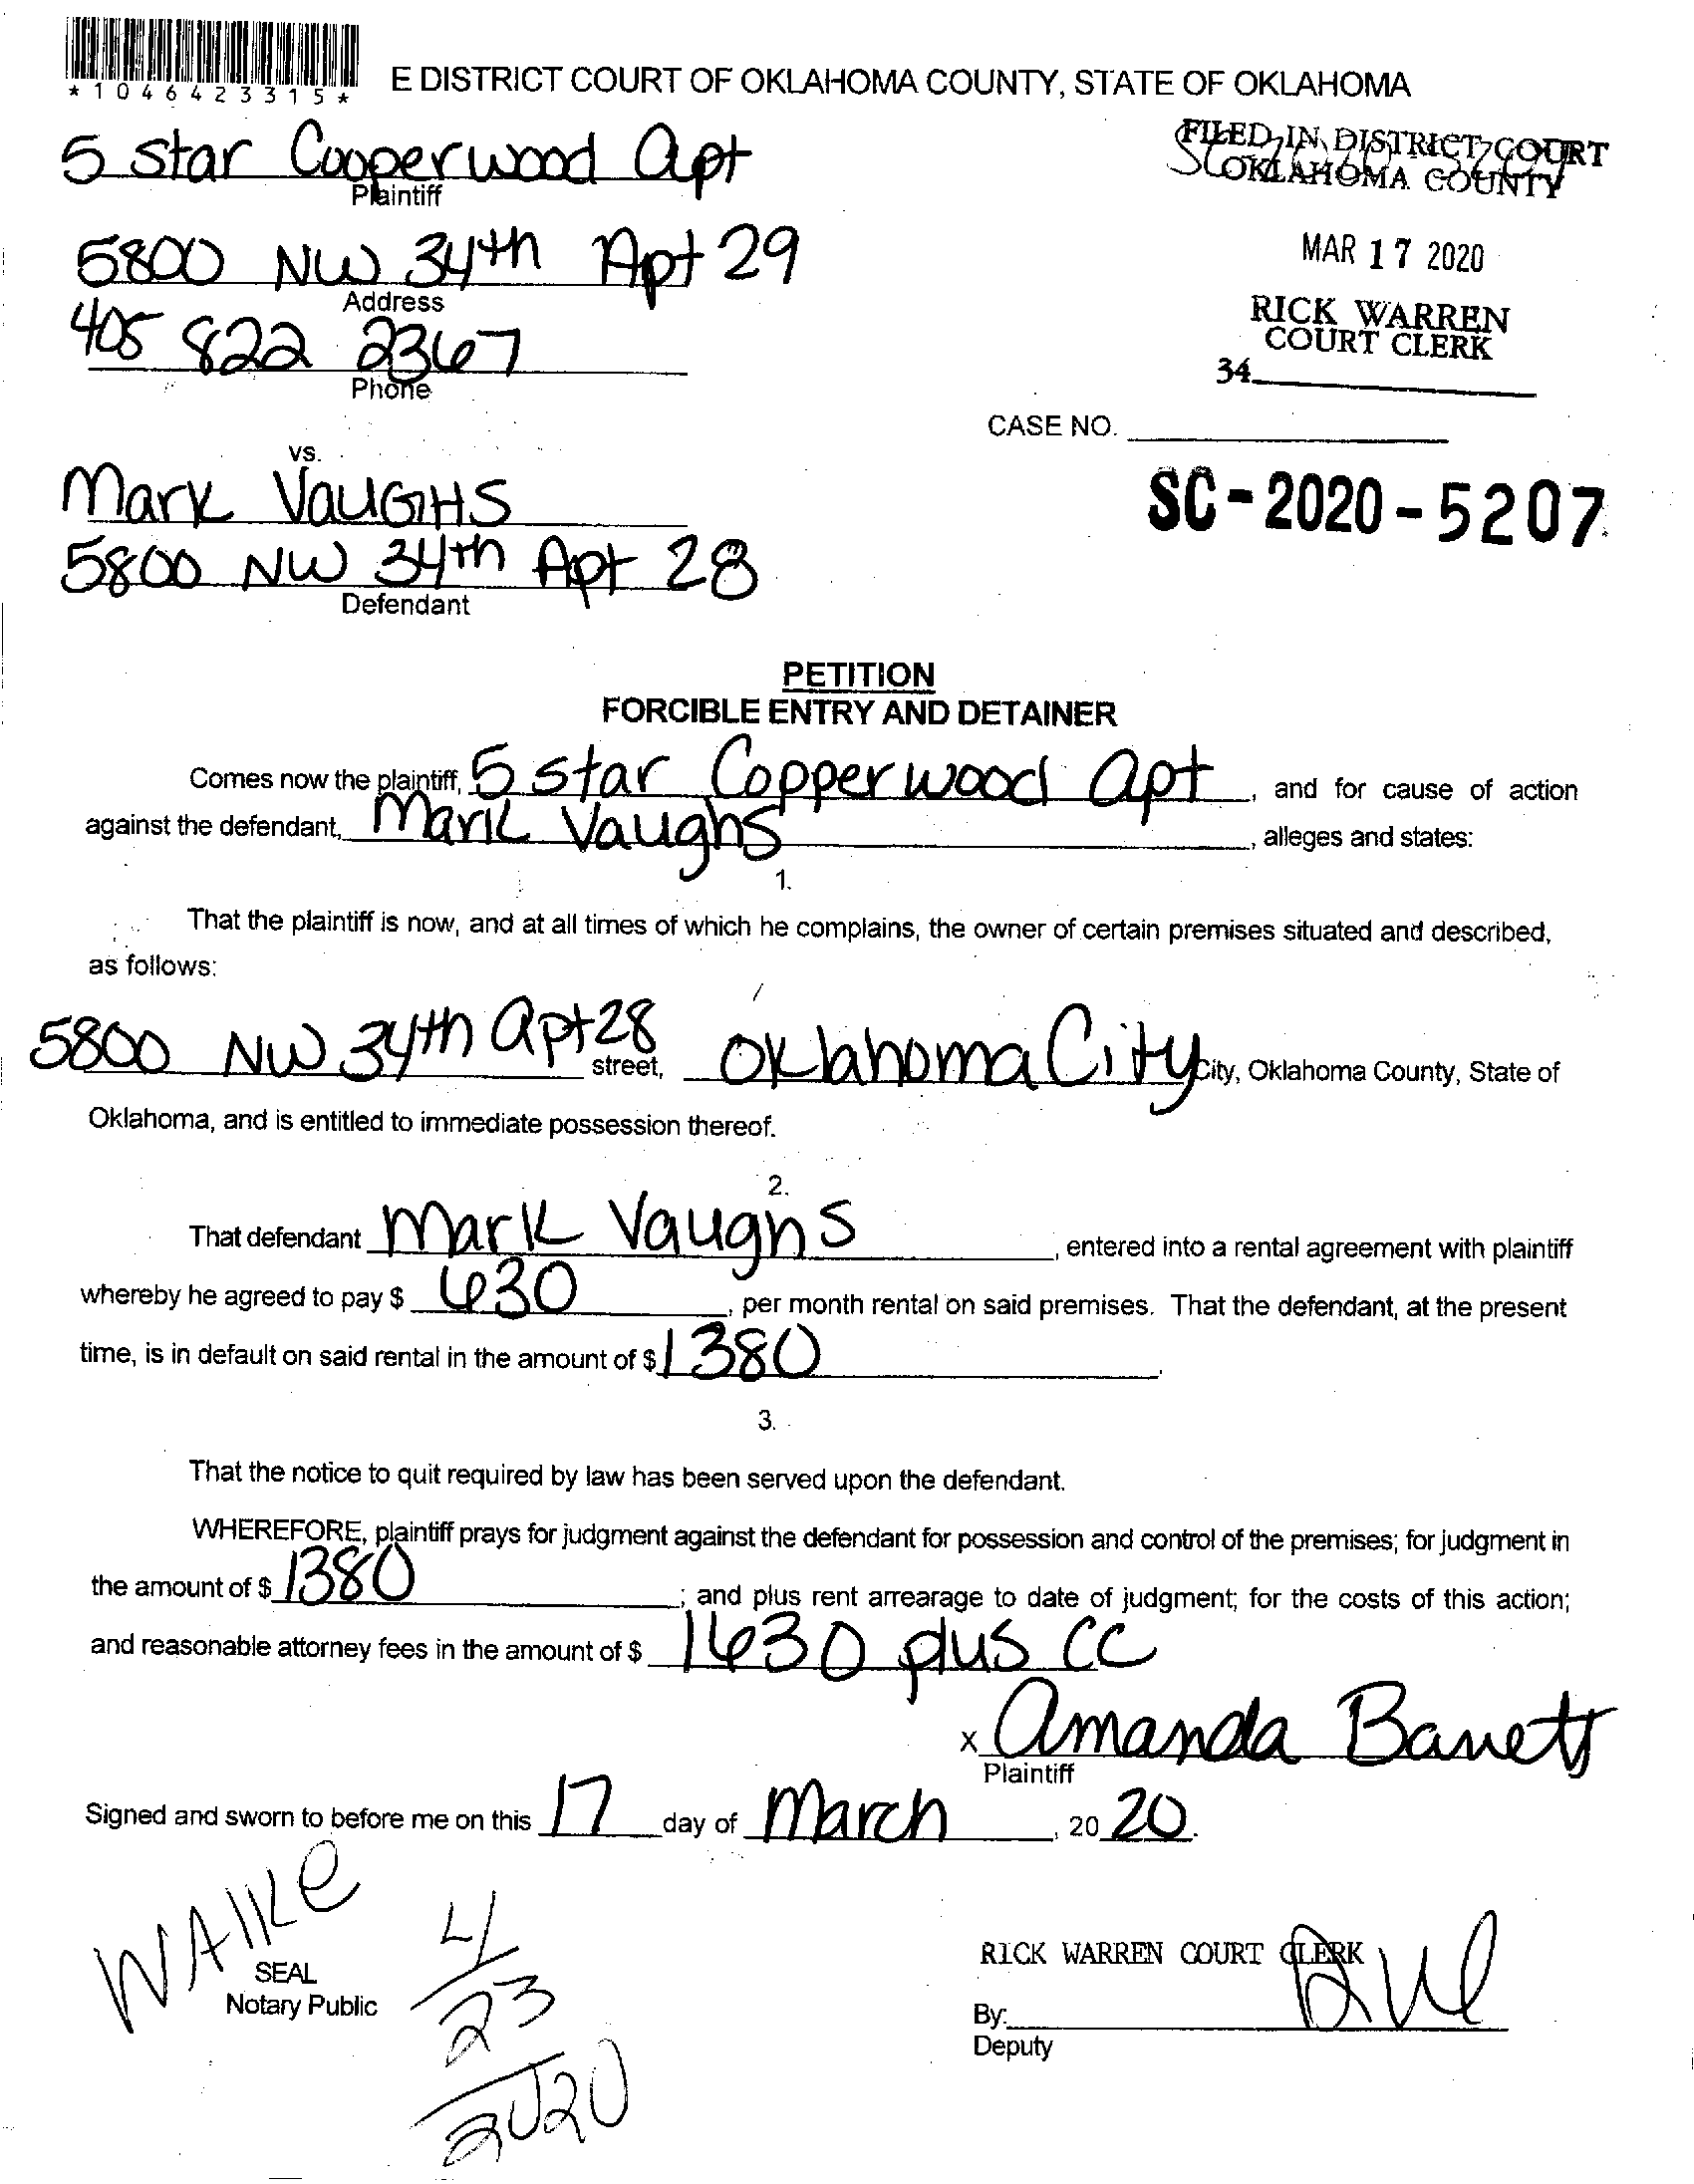 *1046423315*
E DISTRICT COURT OF OKLAHOMA COUNTY, STATE OF OKLAHOMA
5 Star Cooperwood Apt
Plaintiff
FILED IN DISTRICT COURT
OKLAHOMA COUNTY
5800 NW 34th Apt 29
Address
MAR 17 2020
405 822 2367
Phone
RICK WARREN
COURT CLERK
34
CASE NO.
vs.
Mark VAUGHS
SC-2020-5207
5800 NW 34th Apt 28
Defendant
PETITION
FORCIBLE ENTRY AND DETAINER
Comes now the plaintiff, 5 Star Copperwood Apt, and for cause of action
against the defendant, Mark Vaughs, alleges and states:
1.
That the plaintiff is now, and at all times of which he complains, the owner of certain premises situated and described,
as follows:
5800 NW 34th Apt 28 street, Oklahoma City City, Oklahoma County, State of
Oklahoma, and is entitled to immediate possession thereof.
2.
That defendant Mark Vaughns, entered into a rental agreement with plaintiff
whereby he agreed to pay $ 630, per month rental on said premises. That the defendant, at the present
time, is in default on said rental in the amount of $ 1380.
3.
That the notice to quit required by law has been served upon the defendant.
WHEREFORE, plaintiff prays for judgment against the defendant for possession and control of the premises; for judgment in
the amount of $ 1380; and plus rent arrearage to date of judgment; for the costs of this action;
and reasonable attorney fees in the amount of $ 1630 plus CC
x Amanda Barrett
Plaintiff
Signed and sworn to before me on this 17 day of March, 20 20.
SEAL
Notary Public
4/23/2020
RICK WARREN COURT CLERK
By:
Deputy